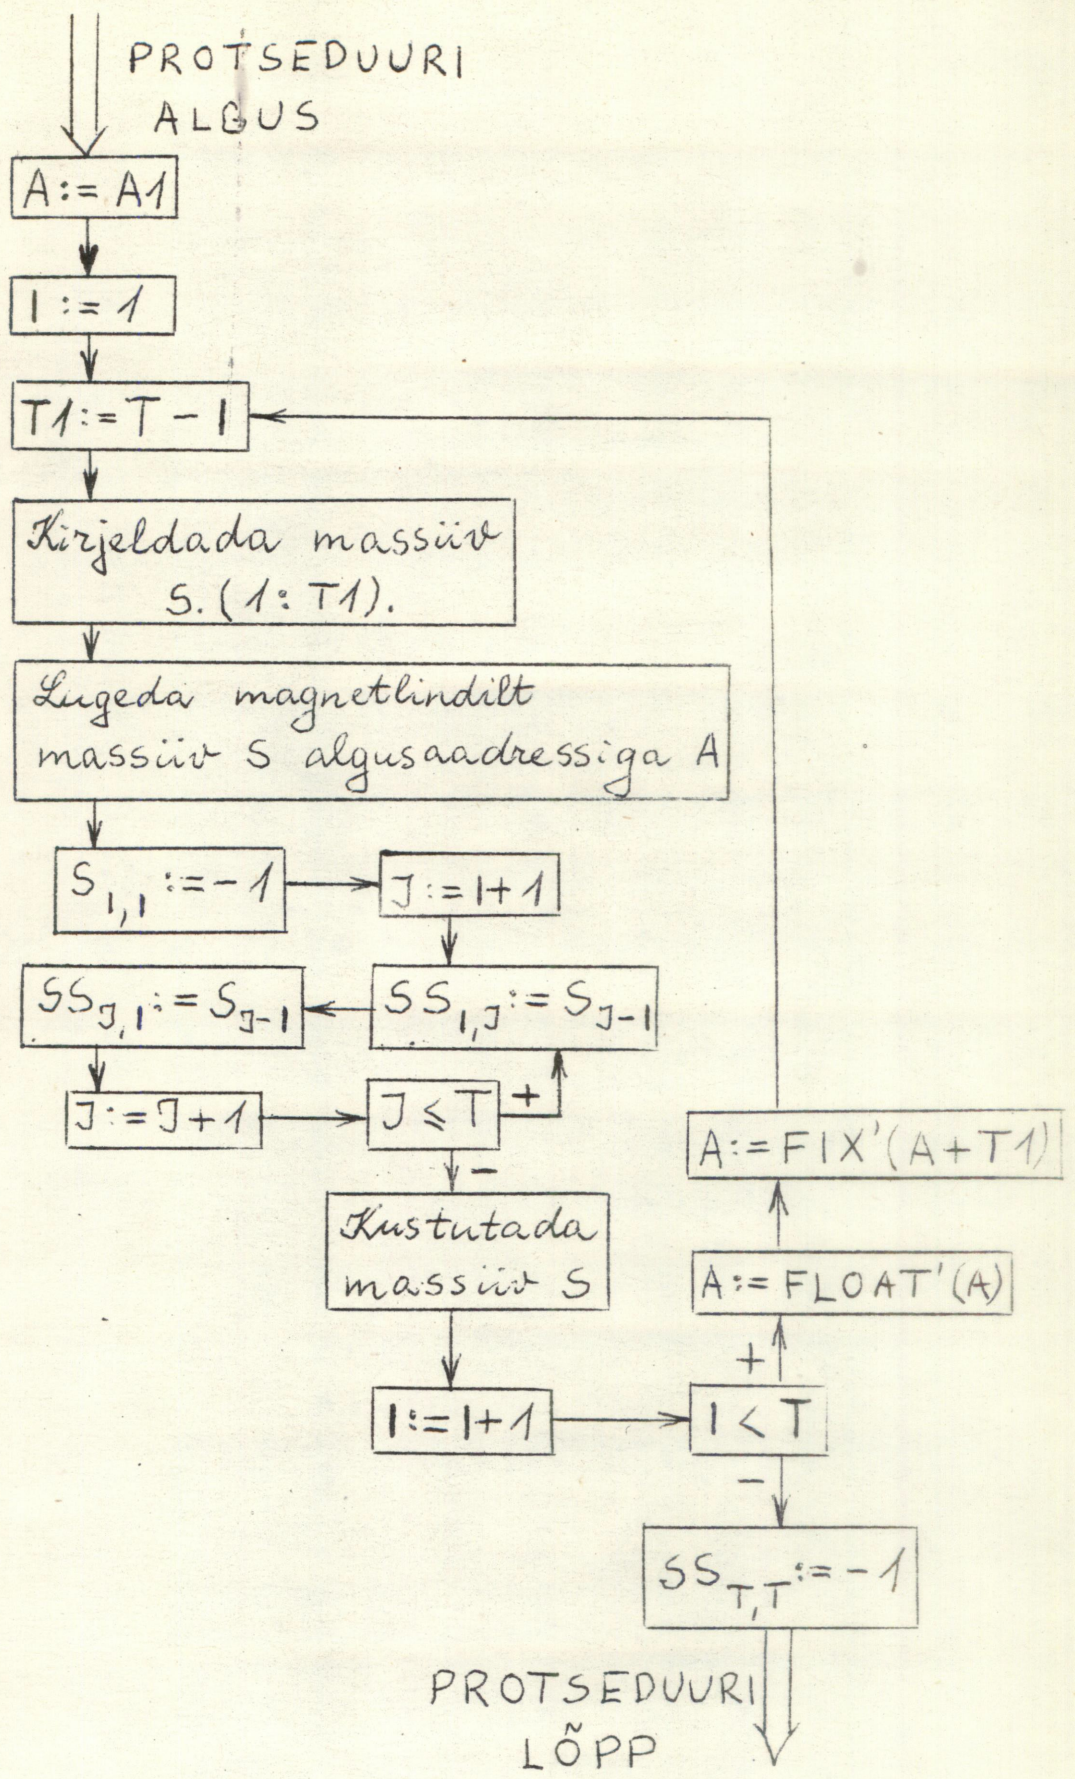 PROTSEDUURI
ALGUS
A := A1
I := 1
T1 := T - I
Kirjeldada massiiv
S. (1 : T1).
Lugeda magnetlindilt
massiiv S algusaadressiga A
S I,I := -1
J := I+1
SS J,I := S J-I
SS I,J := S J-I
J := J+1
J ≤ T
+
-
Kustutada
massiiv S
A := FIX'(A+T1)
A := FLOAT'(A)
+
I := I+1
I < T
-
SS T,T := -1
PROTSEDUURI
LÕPP